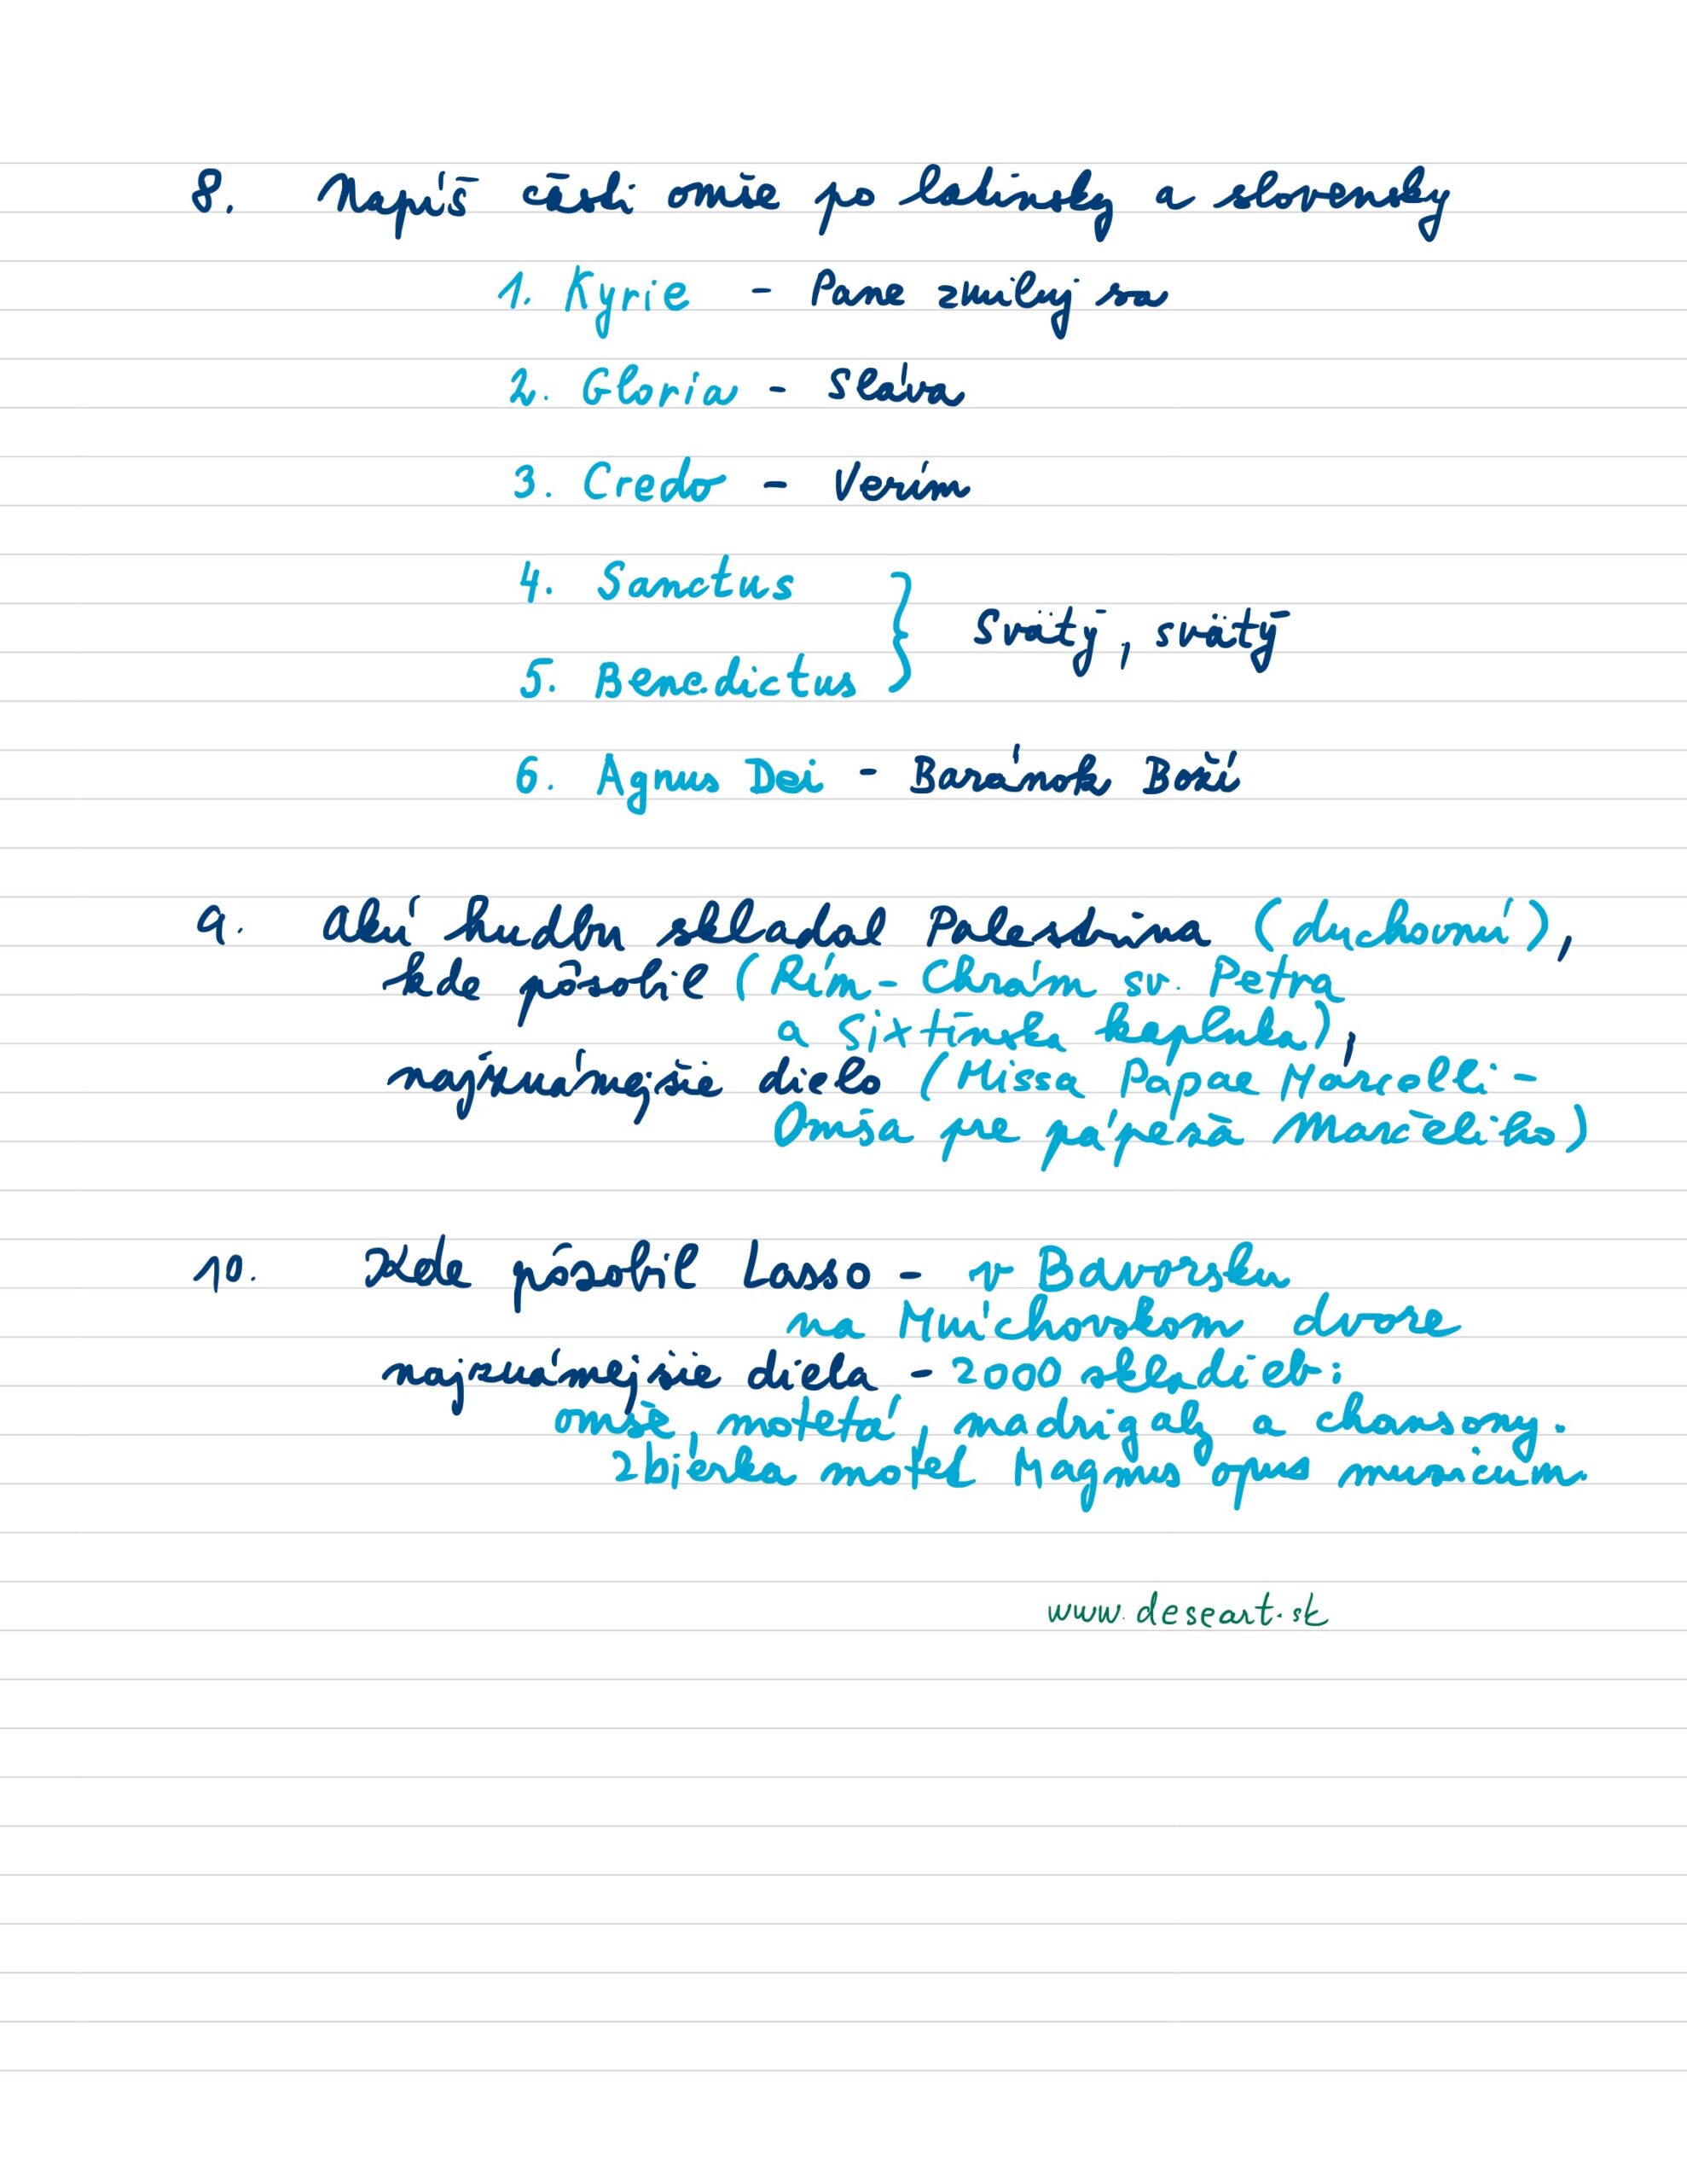 8. Napíš časti omše po latinsky a slovensky
1. Kyrie - Pane zmiluj sa
2. Gloria - Sláva
3. Credo - Verím
4. Sanctus
Svätý, svätý
5. Benedictus
6. Agnus Dei - Baránok Boží
9. Akú hudbu skladal Palestrina (duchovnú),
kde pôsobil (Rím - Chrám sv. Petra
a Sixtínska kaplnka),
najznámejšie dielo (Missa Papae Marcelli -
Omša pre pápeža Marcelího)
10. Kde pôsobil Lasso - v Bavorsku
na Mníchovskom dvore
najznámejšie diela - 2000 skladieb:
omše, motetá, madrigaly a chansony.
Zbierka motet Magnus opus musicum
www.deseart.sk